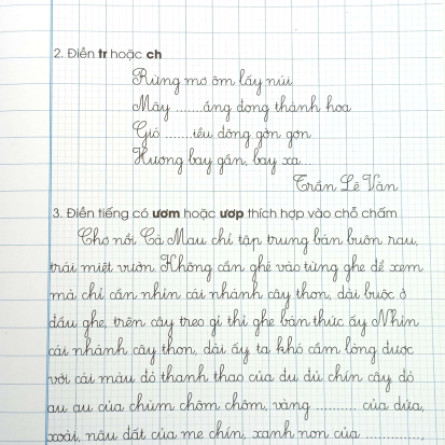 2. Điền tr hoặc ch
Rừng mơ ôm lấy núi
Mây ......áng đong thành hoa
Gió ......iều đông gờn gợn
Hương bay gần, bay xa...
Trần Lê Văn
3. Điền tiếng có ươm hoặc ươp thích hợp vào chỗ chấm
Chợ nổi Cà Mau chỉ tập trung bán buôn rau,
trái miệt vườn. Không cần ghé vào từng ghe để xem
mà chỉ cần nhìn cái nhánh cây thon, dài buộc ở
đầu ghe, trên cây treo gì thì ghe bán thức ấy. Nhìn
cái nhánh cây thon, dài ấy ta khó cầm lòng được
với cái màu đỏ thanh thao của đu đủ chín cây đỏ
au au của chùm chôm chôm, vàng .......... của dứa,
xoài, nâu đất của me chín, xanh non của ..........,